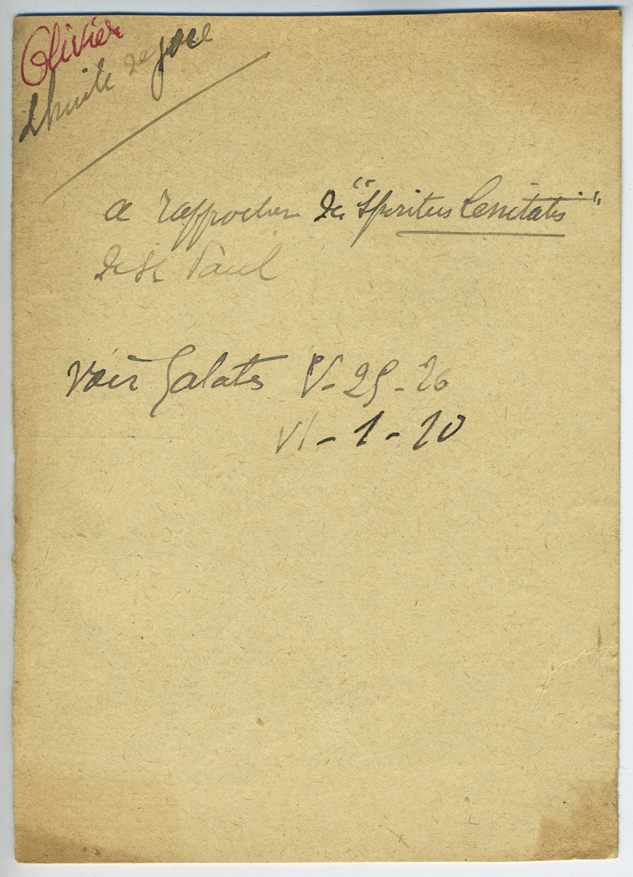 Olivier
L'huile de joie
a rapprocher de "Spiritus Lenitatis"
de St Paul
Voir Galates V - 25 - 26
VI - 1 - 10